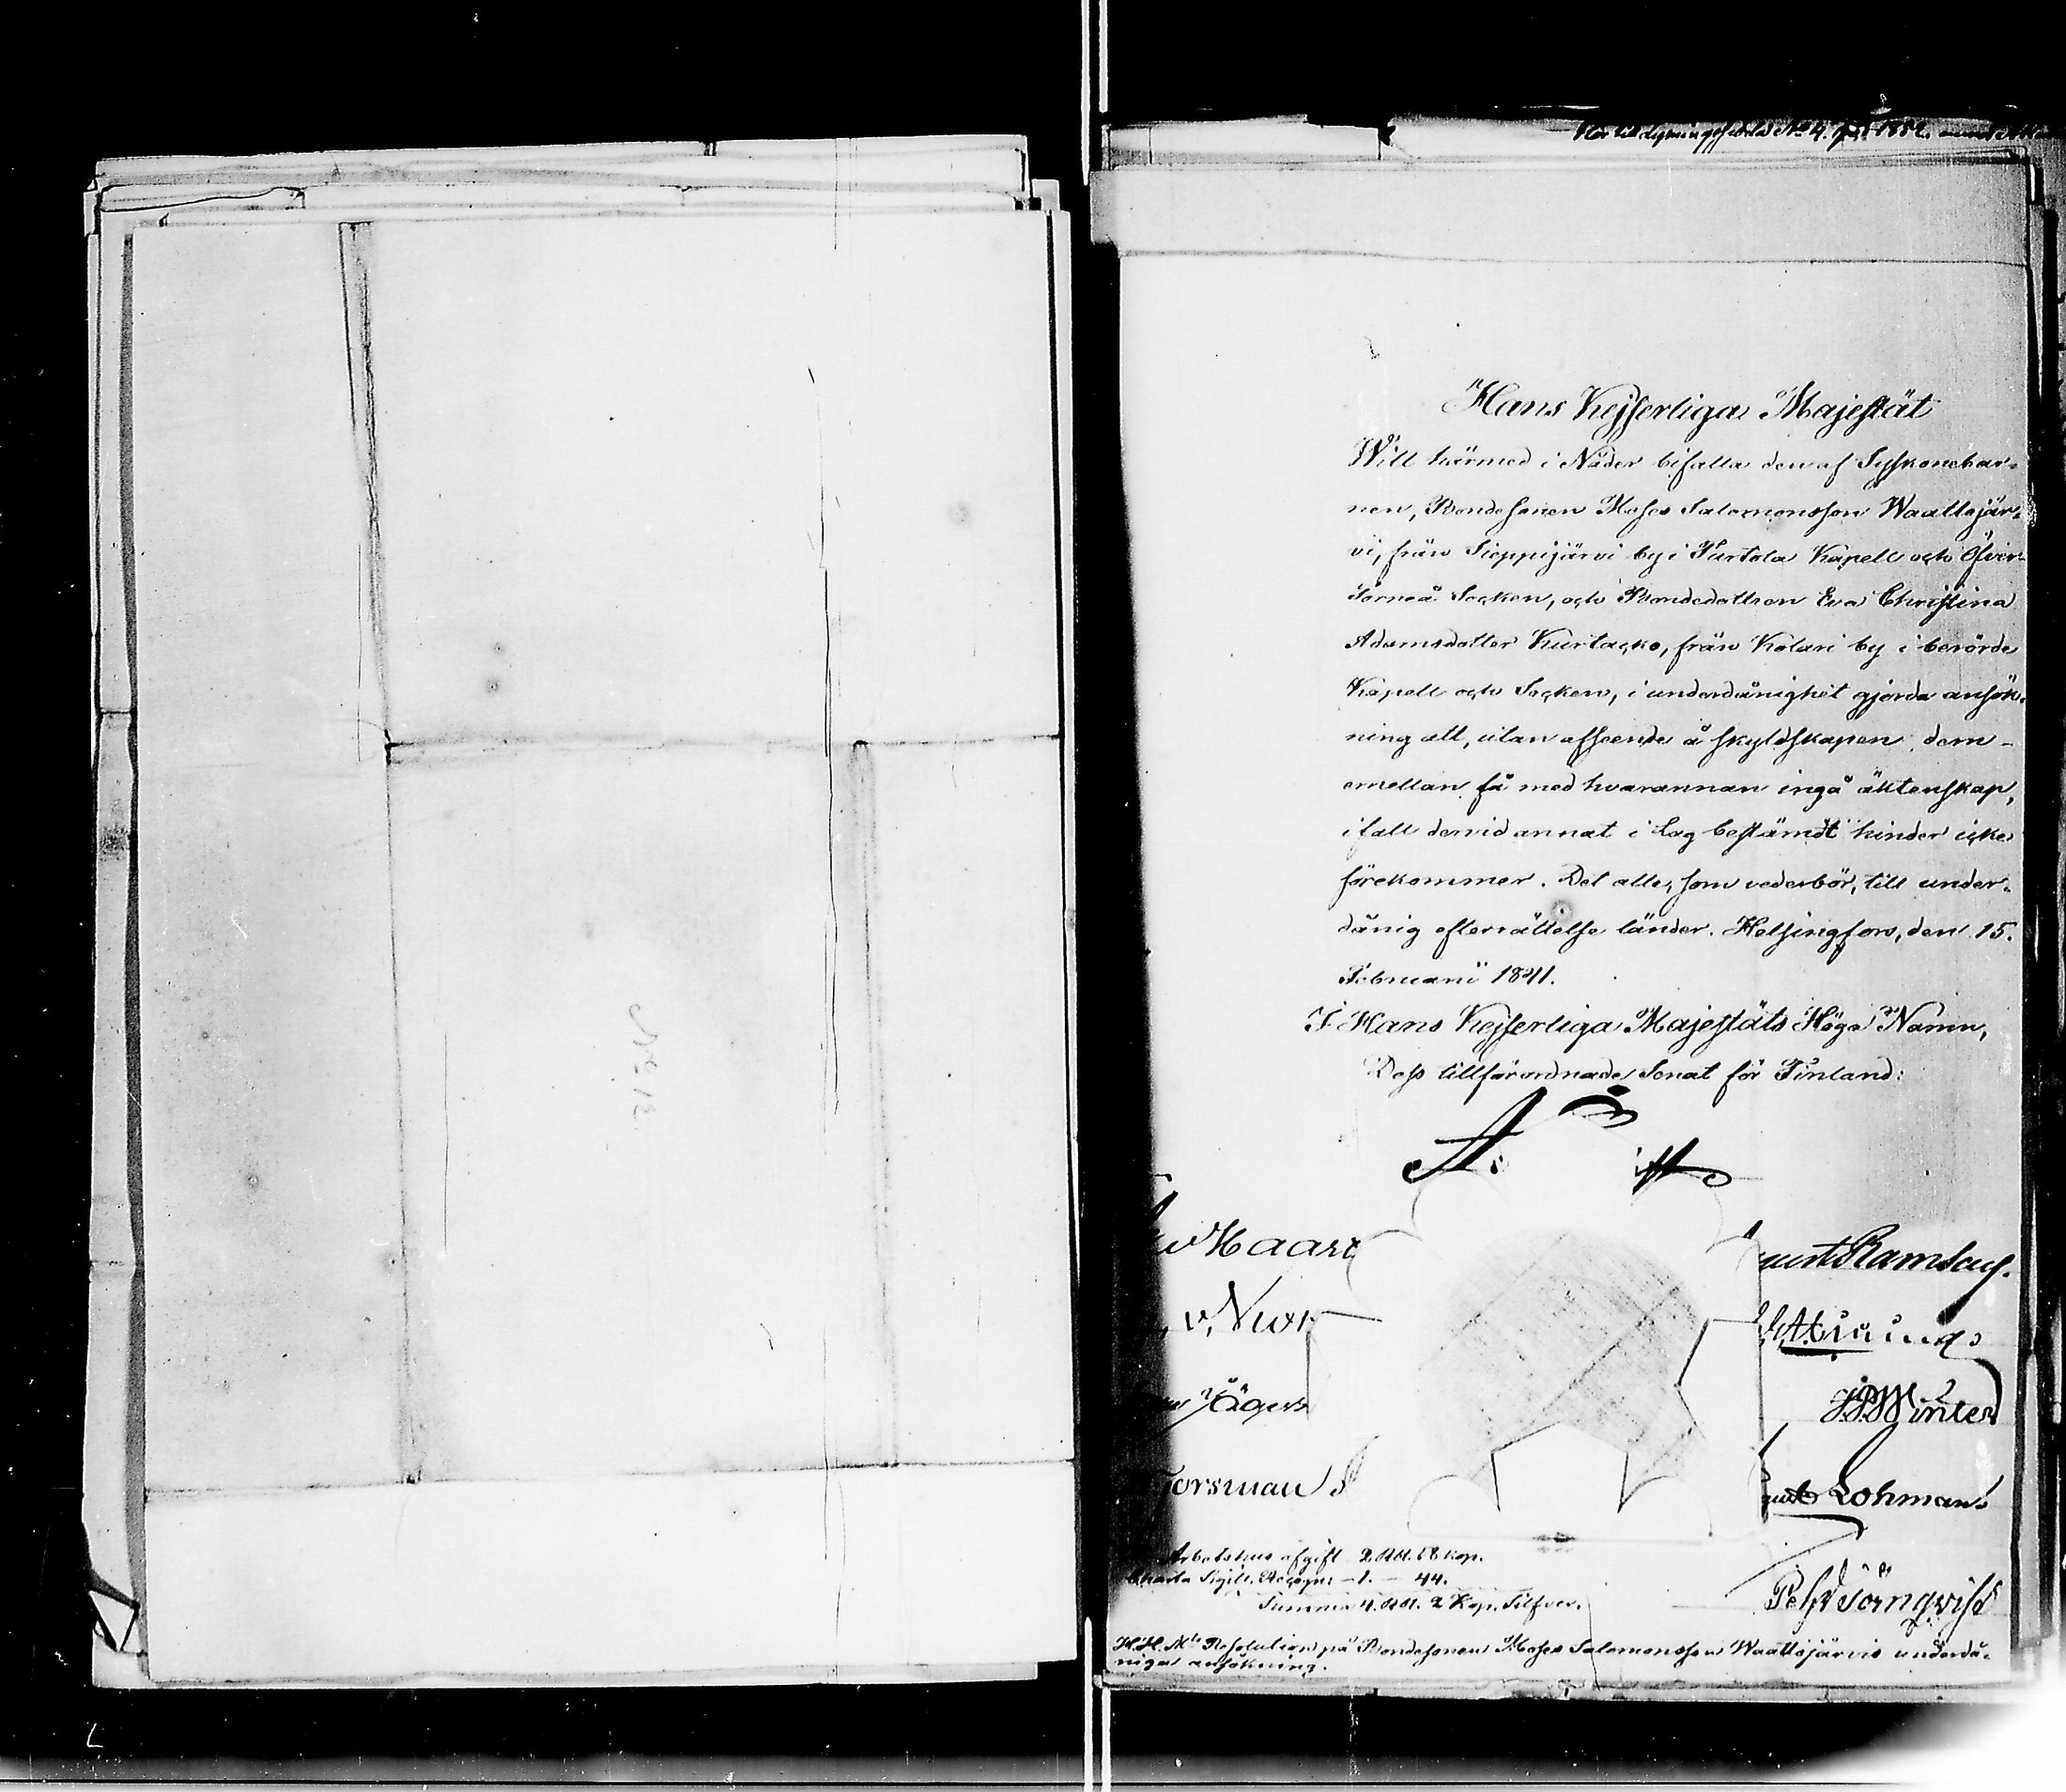 N:o 13.
Hans Kejserliga Majestät
Will härmed i Nåder bifalla den af Syskonebar-
nen, Bondesonen Moses Salomonsson Waattojär-
vi, från Sieppijärvi by i Turtola Kapell och Öfver-
Torneå Socken, och Bondedottren Eva Christina
Adamsdotter Kurtacko, från Kolari by i berörde
Kapell och Socken, i underdånighet gjorda ansök-
ning att, utan afseende å skyldskapen dem-
emellan få med hvarannan ingå äktenskap,
ifall dervid annat i Lag bestämdt hinder icke
förekommer. Det alle, som vederbör, till under-
dånig efterrättelse länder. Helsingfors, den 15.
Februarii 1841.
I Hans Kejserliga Majestäts Höga Namn,
Dess tillförordnade Senat för Finland:
v Haart
Ramsay.
v,
JPWinter
Forsman
Lohman
Arbetshus afgift 2 Rbl. 58 kop.
Charta Sigill. Recogn: – 1. – 44.
Summa 4. Rbl. 2 Kop. Silfver.
Pehr Törnqvist
H.K. M:ts Resolution på Bondesonen Moses Salomonsson Waattojärvis underdå-
niga ansökning.